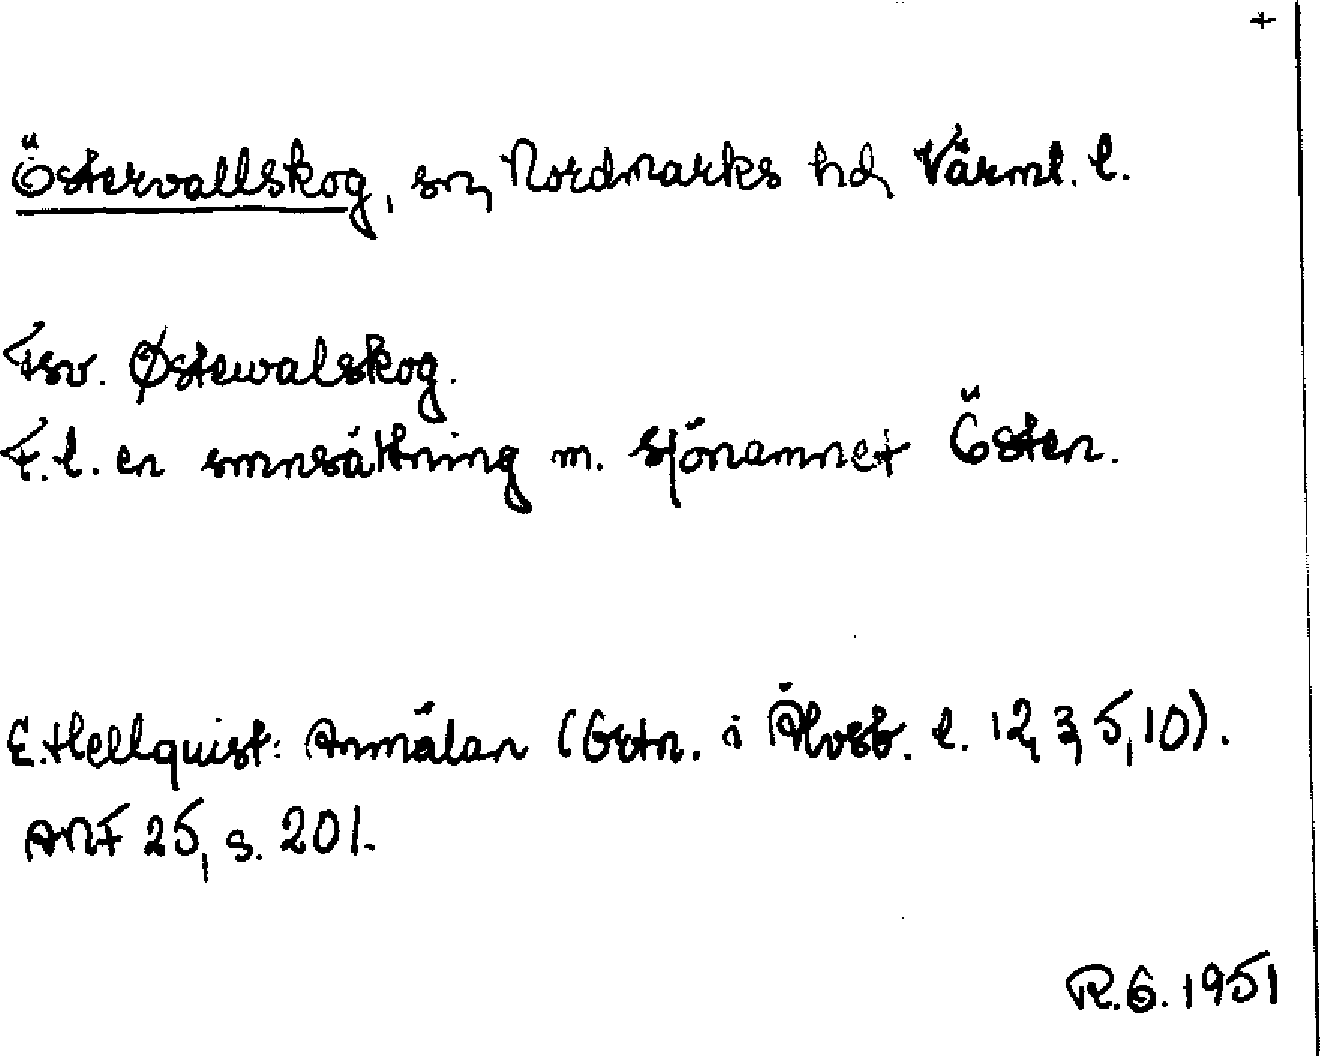 +
Östervallskog, sn, Nordmarks hd, Värml. l.
Fsv. Østewalskog.
F.l. en smnsättning m. sjönamnet Östen.
E. Hellquist: Anmälan (Ortn. i Älvsb. l. 12, 3, 5, 10).
ANF 25, s. 201.
R.G. 1951